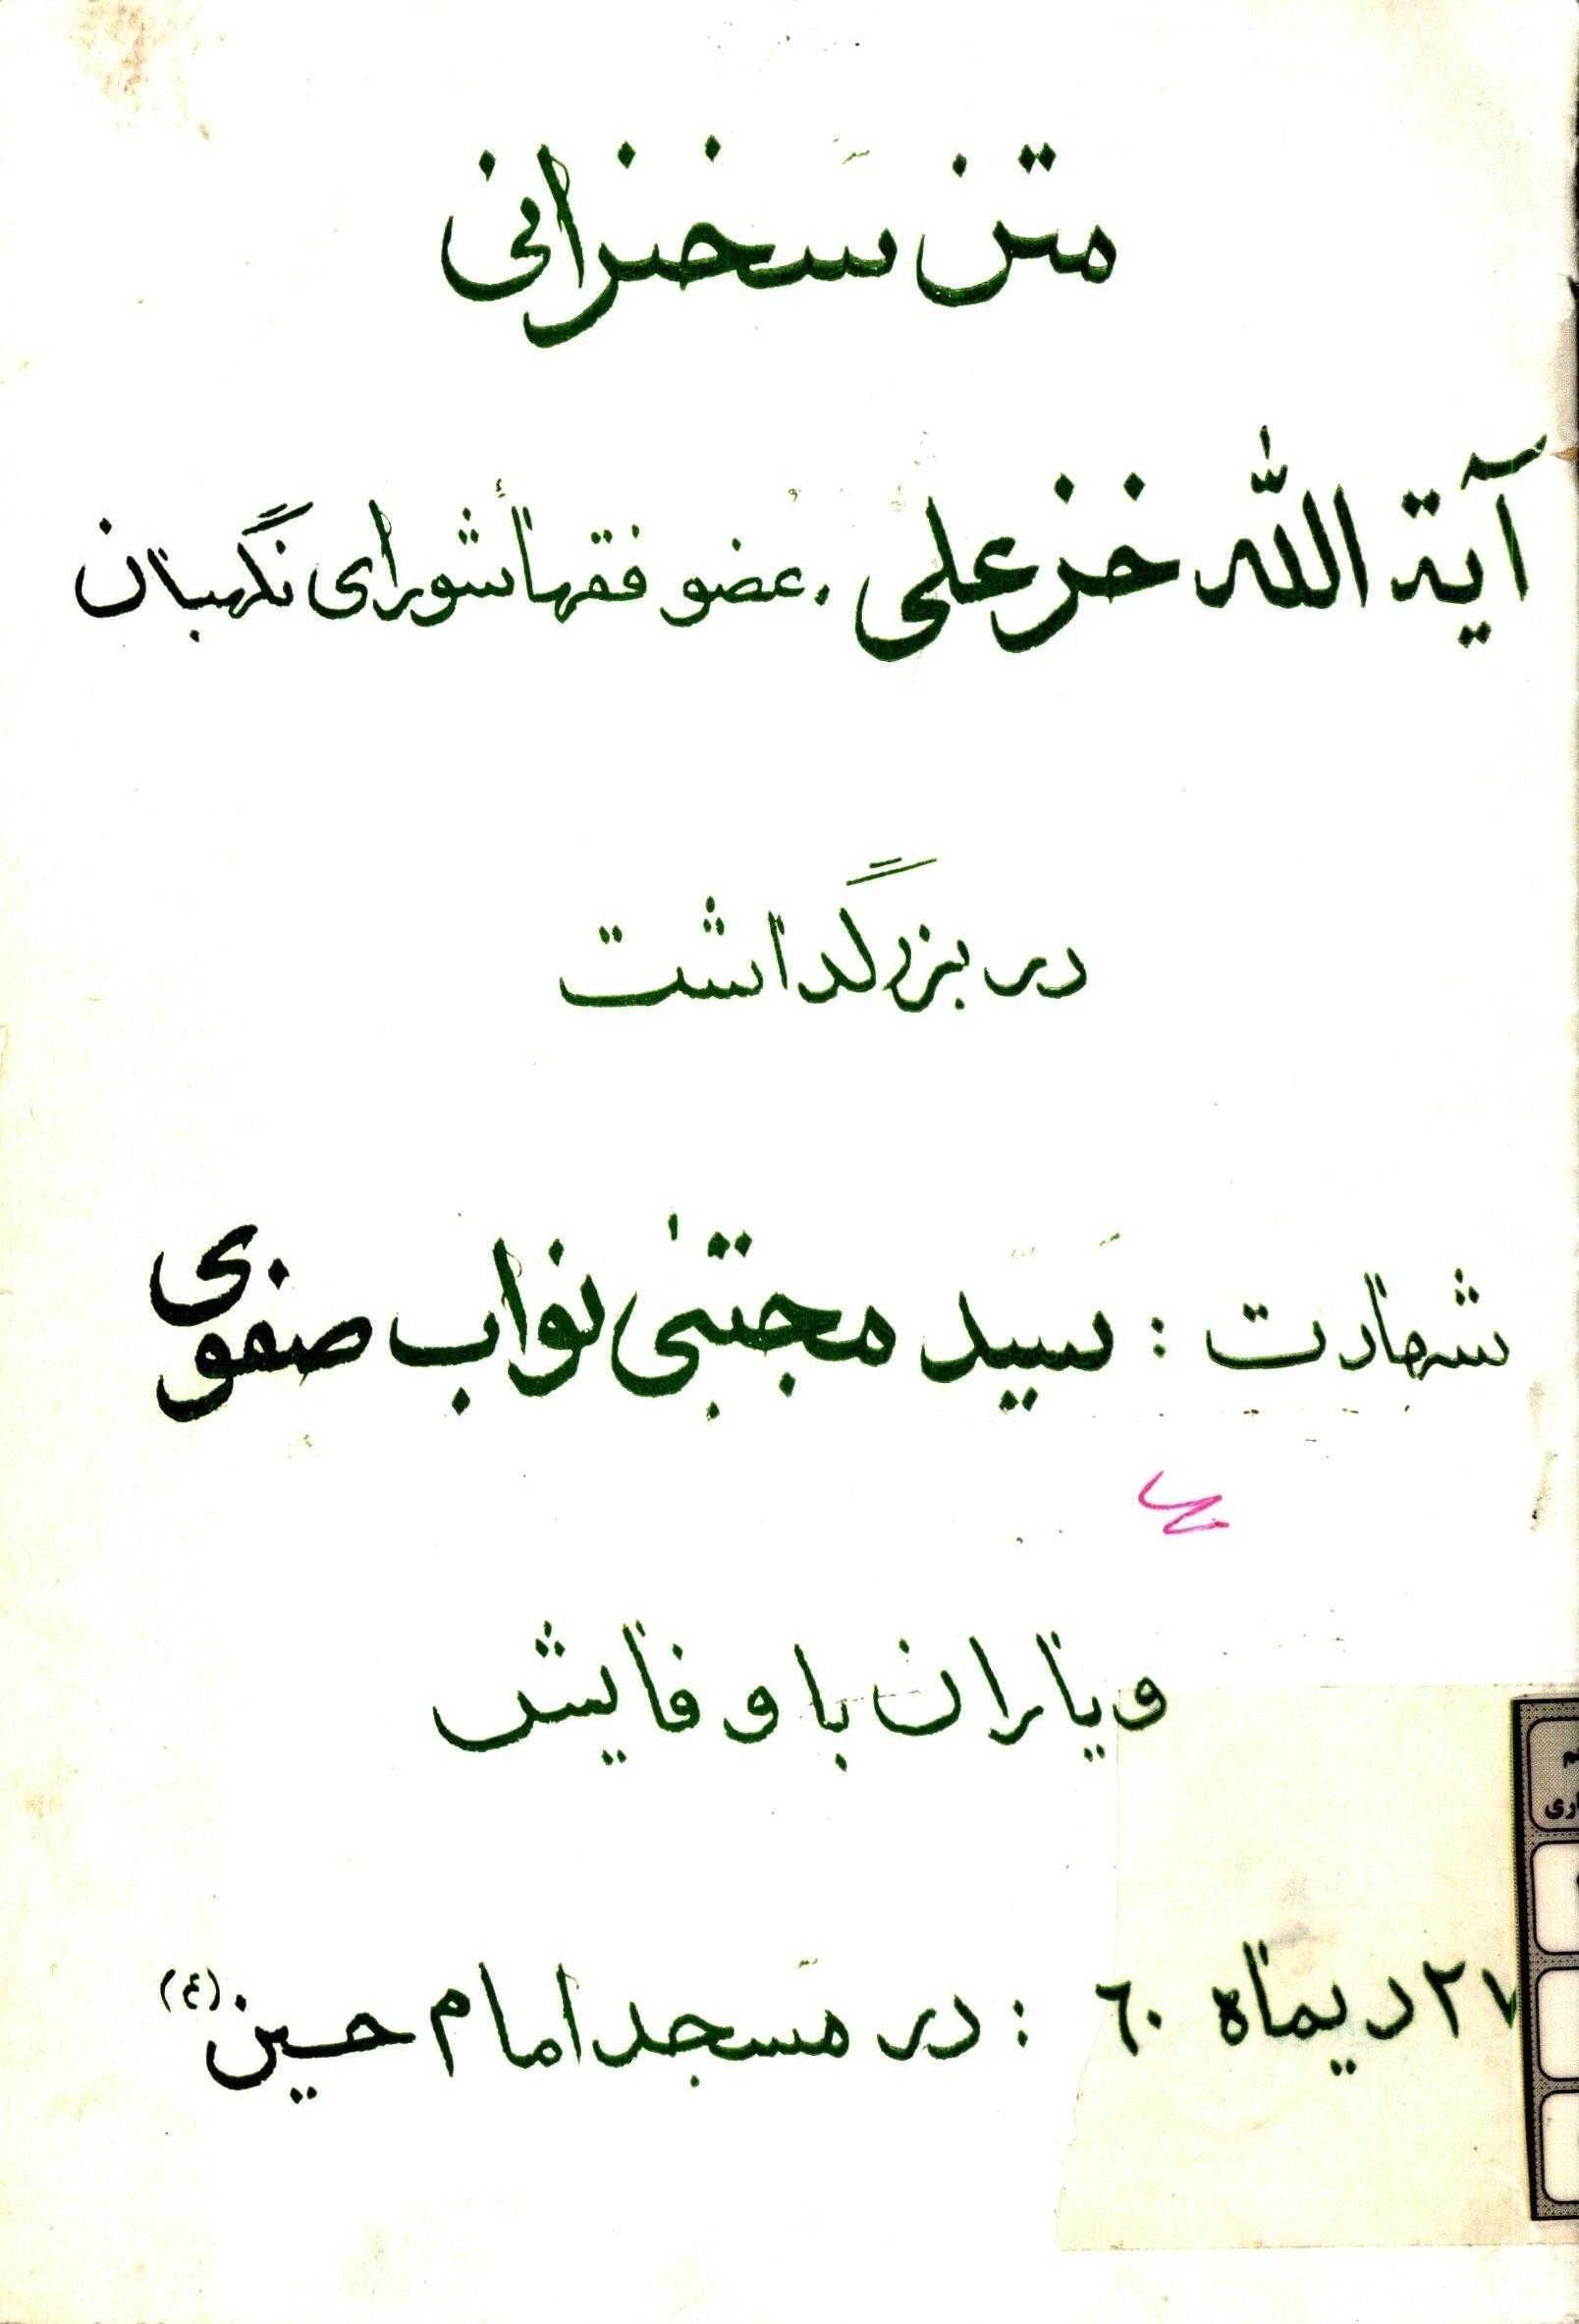 متن سخنرانی
آیة الله خزعلی، عضو فقهأ شورای نگهبان
در بزرگداشت
شهادت : سید مجتبی نواب صفوی
و یاران با وفایش
۲۷ دیماه ٦۰ : در مسجد امام حسین (ع)